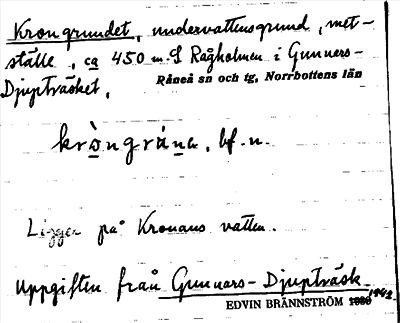 Krongrundet, undervattensgrund, met-
ställe, ca 450 m. S Rågholmen i Gunnars-
Råneå sn och tg, Norrbottens län
Djupträsket.
kròngrúna, bf. n.
Ligger på Kronans vatten.
Uppgiften från Gunnars-Djupträsk
EDVIN BRÄNNSTRÖM 1942